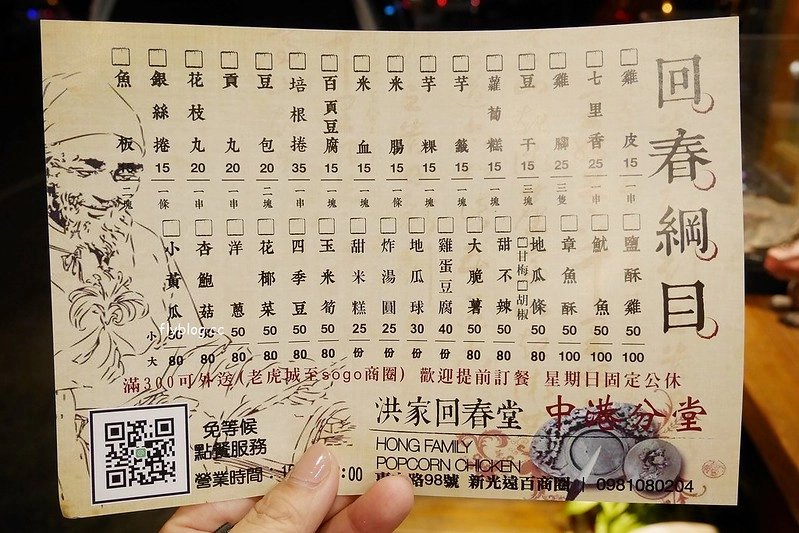 回春綱目
雞皮 15 一串
七里香 25 一串
雞腳 25 三隻
豆干 15 三塊
蘿蔔糕 15 一塊
芋籤 15 一塊
芋粿 15 一塊
米腸 15 一條
米血 15 一塊
百頁豆腐 15 一塊
培根捲 35 一串
豆包 20 二塊
貢丸 20 一串
花枝丸 20 一串
銀絲捲 15 一條
魚板 一塊
鹽酥雞 50 100
魷魚 50 100
章魚酥 50 100
地瓜條 50 80
□甘梅□胡椒
甜不辣 50 80
大脆薯 50 80
雞蛋豆腐 40 份
地瓜球 30 份
炸湯圓 25 份
甜米糕 25 份
玉米筍 50 80
四季豆 50 80
花椰菜 50 80
洋蔥 50 80
杏鮑菇 50 80
小黃瓜 50 80
小
大
滿300可外送(老虎城至sogo商圈) 歡迎提前訂餐 星期日固定公休
洪家回春堂 中港分堂
HONG FAMILY
POPCORN CHICKEN
路98號 新光遠百商圈 | 0981080204
免等候
點餐服務
營業時間:
:00
flyblog.cc